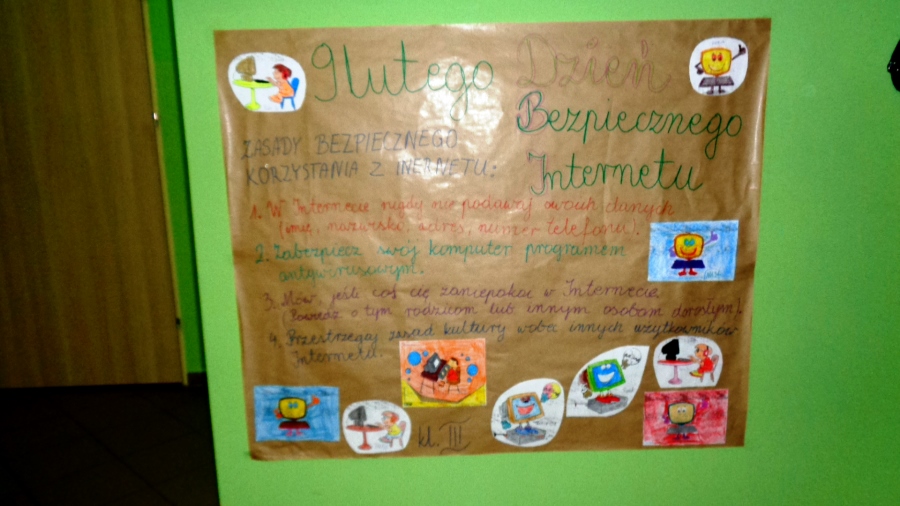 9 lutego Dzień
Bezpiecznego
Internetu
ZASADY BEZPIECZNEGO
KORZYSTANIA Z INERNETU:
1. W Internecie nigdy nie podawaj swoich danych
(imię, nazwisko, adres, numer telefonu).
2. Zabezpiecz swój komputer programem
antywirusowym.
3. Mów, jeśli coś cię zaniepokoi w Internecie
(Powiedz o tym rodzicom lub innym osobom dorosłym).
4. Przestrzegaj zasad kultury wobec innych użytkowników
Internetu.
kl. III